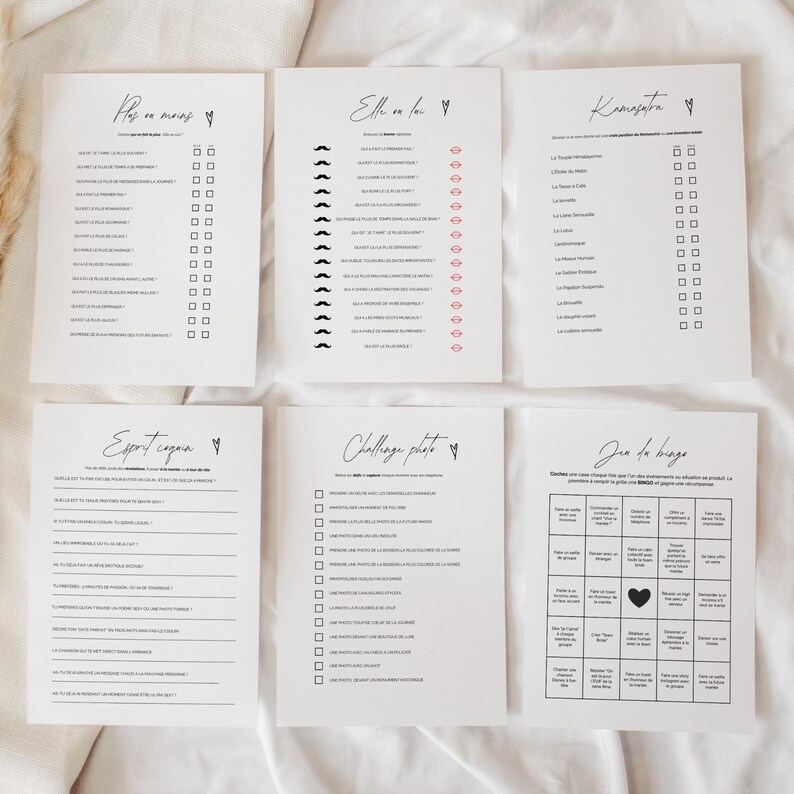 Plus ou moins
Cochez qui en fait le plus. Elle ou Lui ?
ELLE LUI
QUI DIT "JE T'AIME" LE PLUS SOUVENT ?
QUI MET LE PLUS DE TEMPS À SE PRÉPARER ?
QUI ENVOIE LE PLUS DE MESSAGES DANS LA JOURNÉE ?
QUI A FAIT LE PREMIER PAS ?
QUI EST LE PLUS ROMANTIQUE ?
QUI EST LE PLUS GOURMAND ?
QUI FAIT LE PLUS DE CÂLINS ?
QUI PARLE LE PLUS DE MARIAGE ?
QUI A LE PLUS DE CHAUSSURES ?
QUI A EU LE PLUS DE CRUSHS AVANT L'AUTRE ?
QUI FAIT LE PLUS DE BLAGUES (MÊME NULLES) ?
QUI EST LE PLUS DÉPENSIER ?
QUI EST LE PLUS JALOUX ?
QUI PENSE DÉJÀ AUX PRÉNOMS DES FUTURS ENFANTS ?
Elle ou lui
Entourez la bonne réponse.
QUI A FAIT LE PREMIER PAS ?
QUI EST LE PLUS ROMANTIQUE ?
QUI CUISINE LE PLUS SOUVENT ?
QUI RONFLE LE PLUS FORT ?
QUI EST LE/LA PLUS ORGANISÉ(E) ?
QUI PASSE LE PLUS DE TEMPS DANS LA SALLE DE BAIN ?
QUI DIT "JE T'AIME" LE PLUS SOUVENT ?
QUI EST LE/LA PLUS DÉPENSIER(E) ?
QUI OUBLIE TOUJOURS LES DATES IMPORTANTES ?
QUI A LE PLUS MAUVAIS CARACTÈRE LE MATIN ?
QUI A CHOISI LA DESTINATION DES VACANCES ?
QUI A PROPOSÉ DE VIVRE ENSEMBLE ?
QUI A LES PIRES GOÛTS MUSICAUX ?
QUI A PARLÉ DE MARIAGE EN PREMIER ?
QUI EST LE PLUS DRÔLE ?
Kamasutra
Devinez si le nom donné est une vraie position du Kamasutra ou une invention totale
VRAI FAUX
La Toupie Himalayenne
L'Étoile du Matin
La Tasse à Café
La levrette
La Liane Sensuelle
Le Lotus
L'andromaque
Le Mixeur Humain
Le Sablier Érotique
Le Papillon Suspendu
La Brouette
Le dauphin volant
La cuillère sensuelle
Esprit coquin
Pas de défis, juste des révélations. À poser à la mariée ou à tour de rôle
QUELLE EST TA PIRE EXCUSE POUR ÉVITER UN CÂLIN, ET EST-CE QUE ÇA A MARCHÉ ?
QUELLE EST TA TENUE PRÉFÉRÉE POUR TE SENTIR SEXY ?
SI TU ÉTAIS UN EMOJI COQUIN, TU SERAIS LEQUEL ?
UN LIEU IMPROBABLE OÙ TU AS DÉJÀ FAIT ?
AS-TU DÉJÀ FAIT UN RÊVE ÉROTIQUE BIZARRE?
TU PRÉFÈRES : 5 MINUTES DE PASSION... OU 1H DE TENDRESSE ?
TU PRÉFÈRES QU'ON T'ENVOIE UN POÈME SEXY OU UNE PHOTO TORRIDE ?
DÉCRIS TON "DATE PARFAIT" EN TROIS MOTS MAIS FAIS-LE COQUIN.
LA CHANSON QUI TE MET DIRECT DANS L'AMBIANCE
AS-TU DÉJÀ ENVOYÉ UN MESSAGE CHAUD À LA MAUVAISE PERSONNE ?
AS-TU DÉJÀ RI PENDANT UN MOMENT CENSÉ ÊTRE ULTRA SEXY ?
Challenge photo
Relève les défis et capture chaque moment avec ton téléphone
PRENDRE UN SELFIE AVEC LES DEMOISELLES D'HONNEUR
IMMORTALISER UN MOMENT DE FOU RIRE
PRENDRE LA PLUS BELLE PHOTO DE LA FUTURE MARIÉE
UNE PHOTO DANS UN LIEU INSOLITE
PRENDRE UNE PHOTO DE LA BOISSON LA PLUS COLORÉE DE LA SOIRÉE
PRENDRE UNE PHOTO DE LA BOISSON LA PLUS COLORÉE DE LA SOIRÉE
IMMORTALISER QUELQU'UN QUI DANSE
UNE PHOTO DE CHAUSSURES STYLÉES
LA PHOTO LA PLUS DRÔLE DE L'EVJF
UNE PHOTO "COUP DE CŒUR" DE LA JOURNÉE
UNE PHOTO DEVANT UNE BOUTIQUE DE LUXE
UNE PHOTO AVEC UN CHECK À UN POLICIER
UNE PHOTO AVEC UN SHOT
UNE PHOTO DEVANT UN MONUMENT HISTORIQUE
Jeu du bingo
Cochez une case chaque fois que l'un des événements ou situation se produit. La
première à remplir la grille crie BINGO et gagne une récompense
Faire un selfie avec une inconnue
Commander un cocktail en criant "Vive la mariée !"
Obtenir un numéro de téléphone
Offrir un compliment à un inconnu
Faire une danse TikTok improvisée
Faire un selfie de groupe
Danser avec un étranger
Faire un câlin collectif avec toute la team bride
Trouver quelqu'un portant le même prénom que la future mariée
Se faire offrir un verre
Parler à un inconnu avec un faux accent
Faire un toast en l'honneur de la mariée
Réussir un high five avec un serveur
Demander à un inconnu s'il veut se marier
Dire "je t'aime" à chaque membre du groupe
Crier "Team Bride"
Réaliser un cœur humain avec la team
Dessiner un tatouage éphémère à la mariée
Danser sur une chaise
Chanter une chanson Disney à tue-tête
Répéter "On est là pour l'EVJF de la reine Nina
Faire un toast en l'honneur de la mariée
Faire une story Instagram avec le groupe
Faire un selfie avec la future mariée